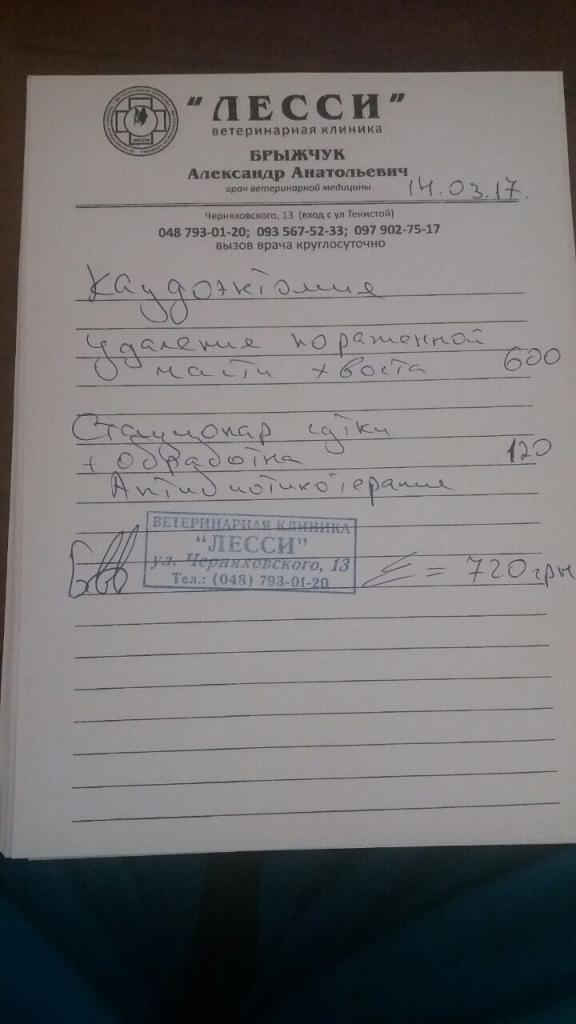 "ЛЕССИ"
ветеринарная клиника
БРЫЖЧУК
Александр Анатольевич
врач ветеринарной медицины
14.03.17.
Черняховского, 13 (вход с ул Тенистой)
048 793-01-20; 093 567-52-33; 097 902-75-17
вызов врача круглосуточно
Каудоэктомия
удаление пораженной
части хвоста 600
Стационар сутки
+ обработка 120
Антибиотикотерапия
ВЕТЕРИНАРНАЯ КЛИНИКА
"ЛЕССИ"
ул. Черняховского, 13
Тел.: (048) 793-01-20
Σ = 720 грн